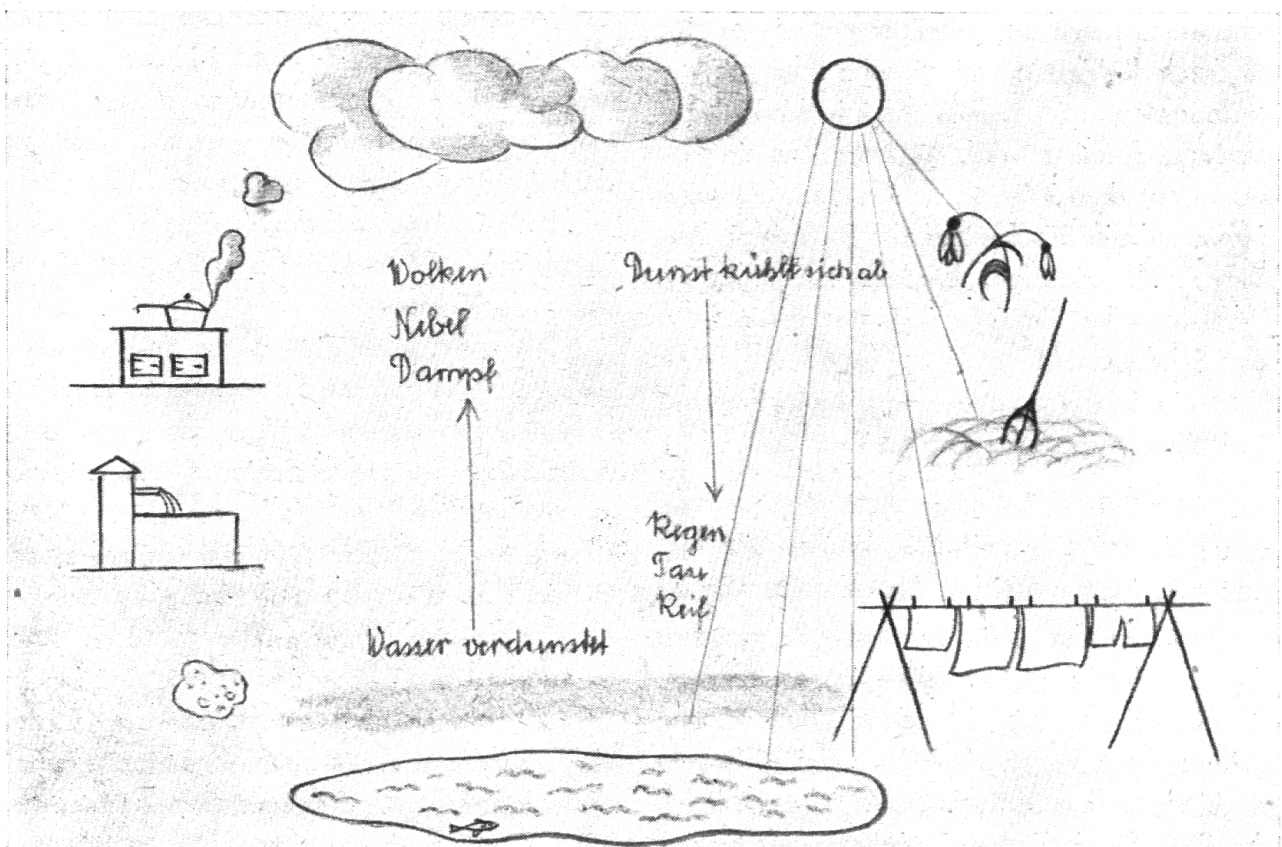 Wolken
Nebel
Dampf
Dunst kühlt sich ab
Regen
Tau
Reif
Wasser verdunstet